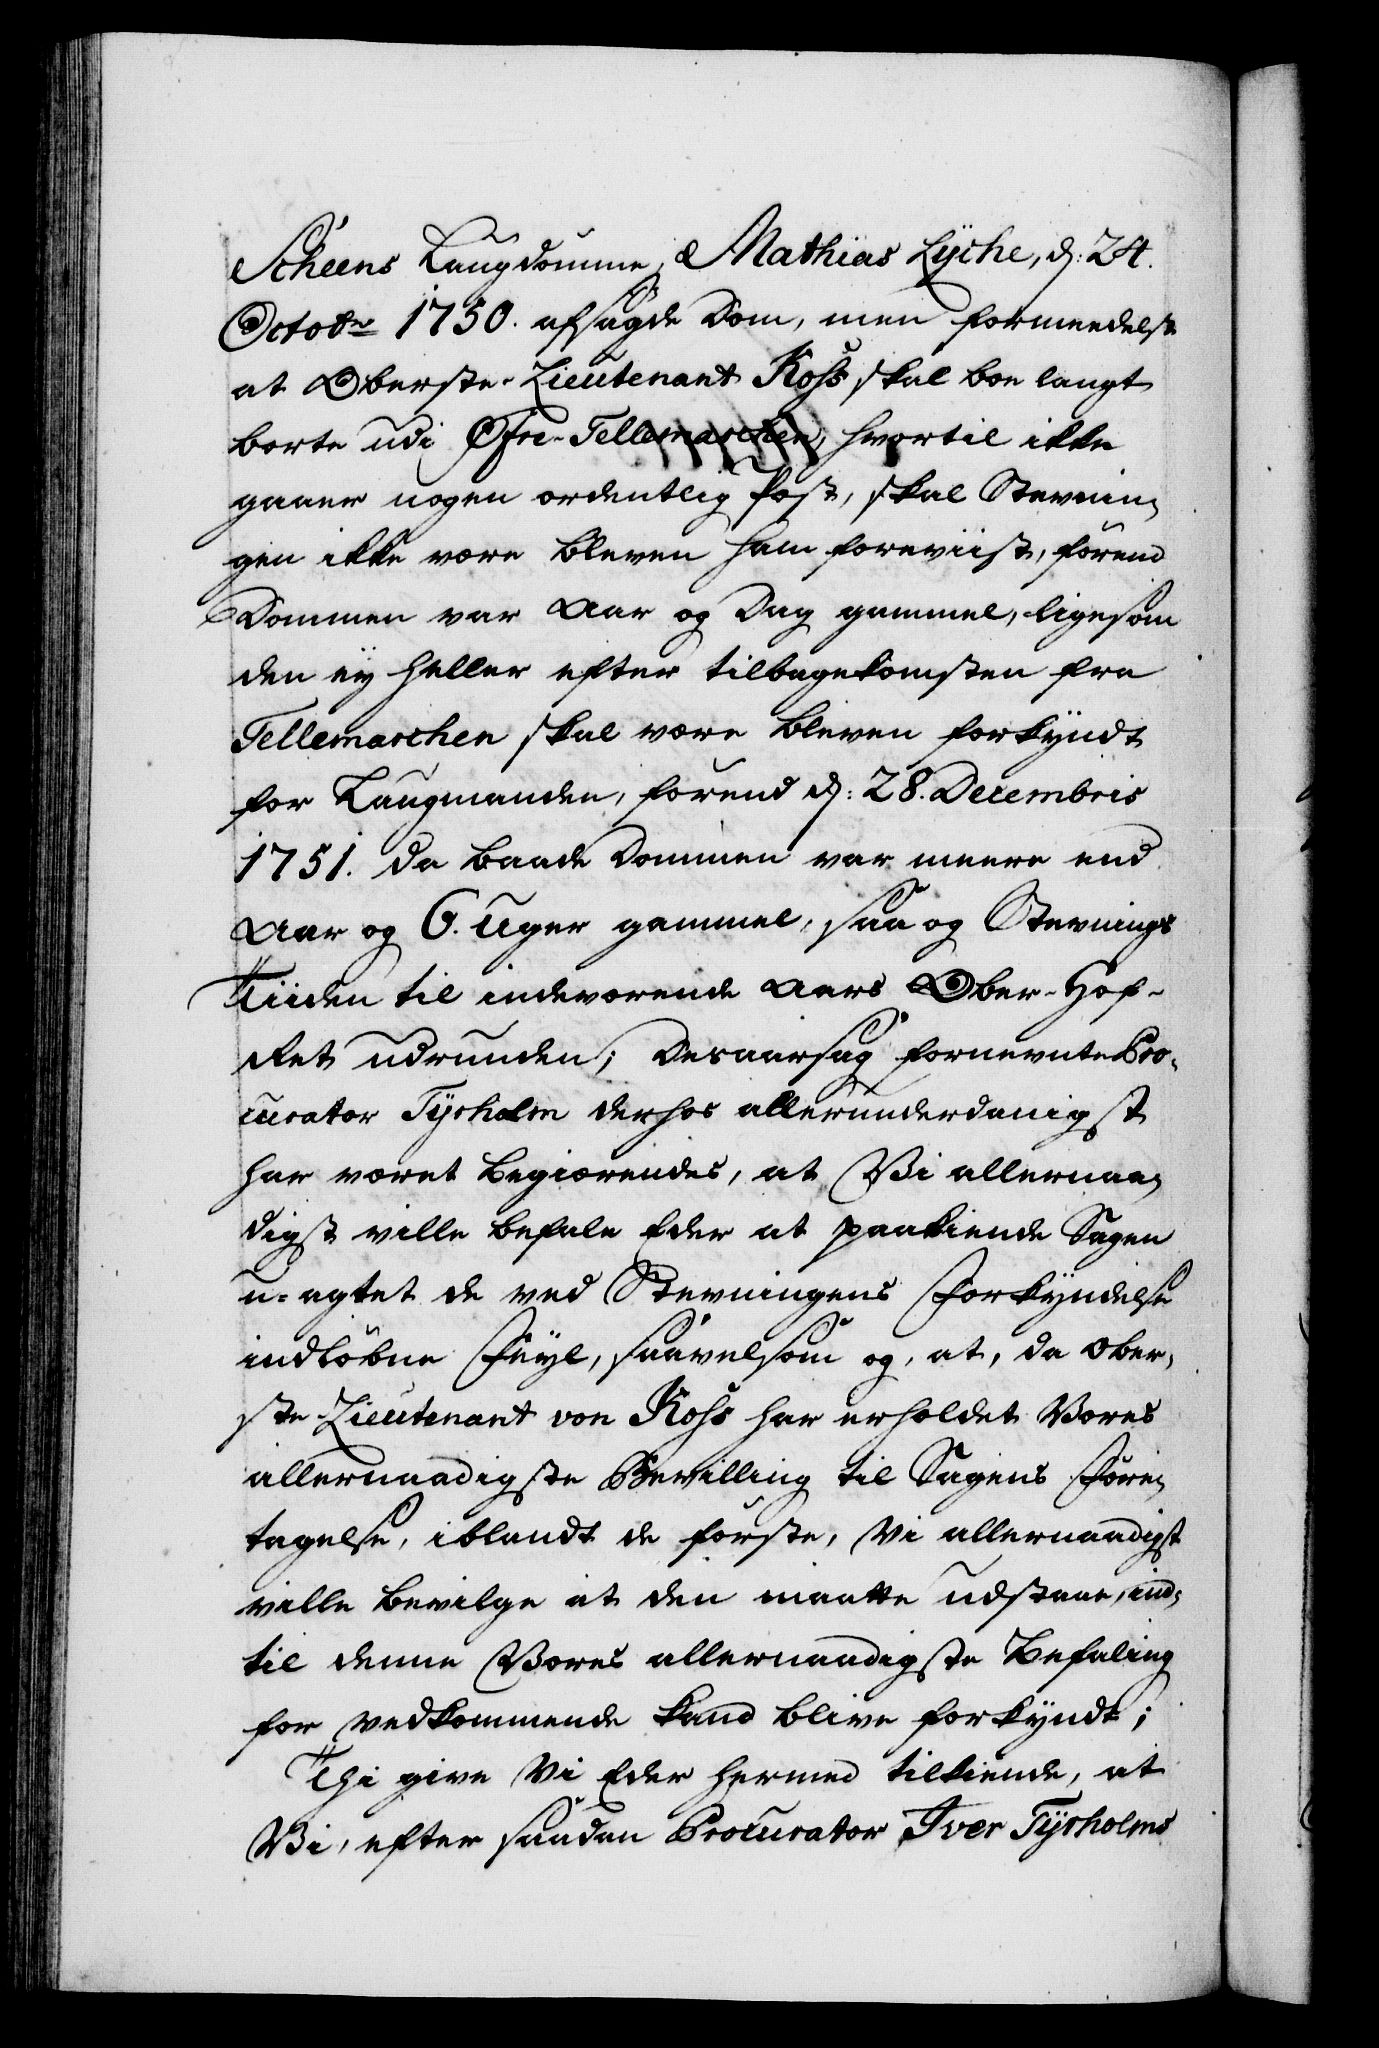 Scheens Laugdømme, Mathias Lÿche, d: 24.
Octobr 1750. afsagde Dom, men formedelst
at Oberste-Lieutenant Koss skal boe langt
borte udi Øfre-Tellemarchen, hvortil ikke
gaaer nogen ordentlig Post, skal Stevnin-
gen ikke være bleven ham foreviist, førend
Dommen var Aar og Dag gammel, ligesom
den eÿ heller efter tilbagekomsten fra
Tellemarchen skal være bleven forkÿndt
for Laugmanden, førend d: 28. Decembris
1751. da baade Dommen var meere end
Aar og 6. Uger gammel, saa og Stevnings
Tiiden til indeværende Aars Ober-Hof-
Ret udrunden; Desaarsag fornevnte Pro-
curator Tÿrholm derhos allerunderdanigst
har været begiærendes, at Vi allernaa-
digst ville befale Eder at paakiende Sagen
u-agtet de ved Stevningens Forkÿndelse
indløbne Feÿl, saavelsom og, at, da Ober-
ste-Lieutenant von Koss har erholdet Vores
allernaadigste Bevilling til Sagens Fore-
tagelse, iblandt de første, Vi allernaadigst
ville bevilge at den maatte udstaae, ind-
til denne Vores allernaadigste Befaling
for vedkommende kand blive forkÿndt;
Thi give Vi Eder hermed tilkiende, at
Vi, efter saadan Procurator Iver Tÿrholms